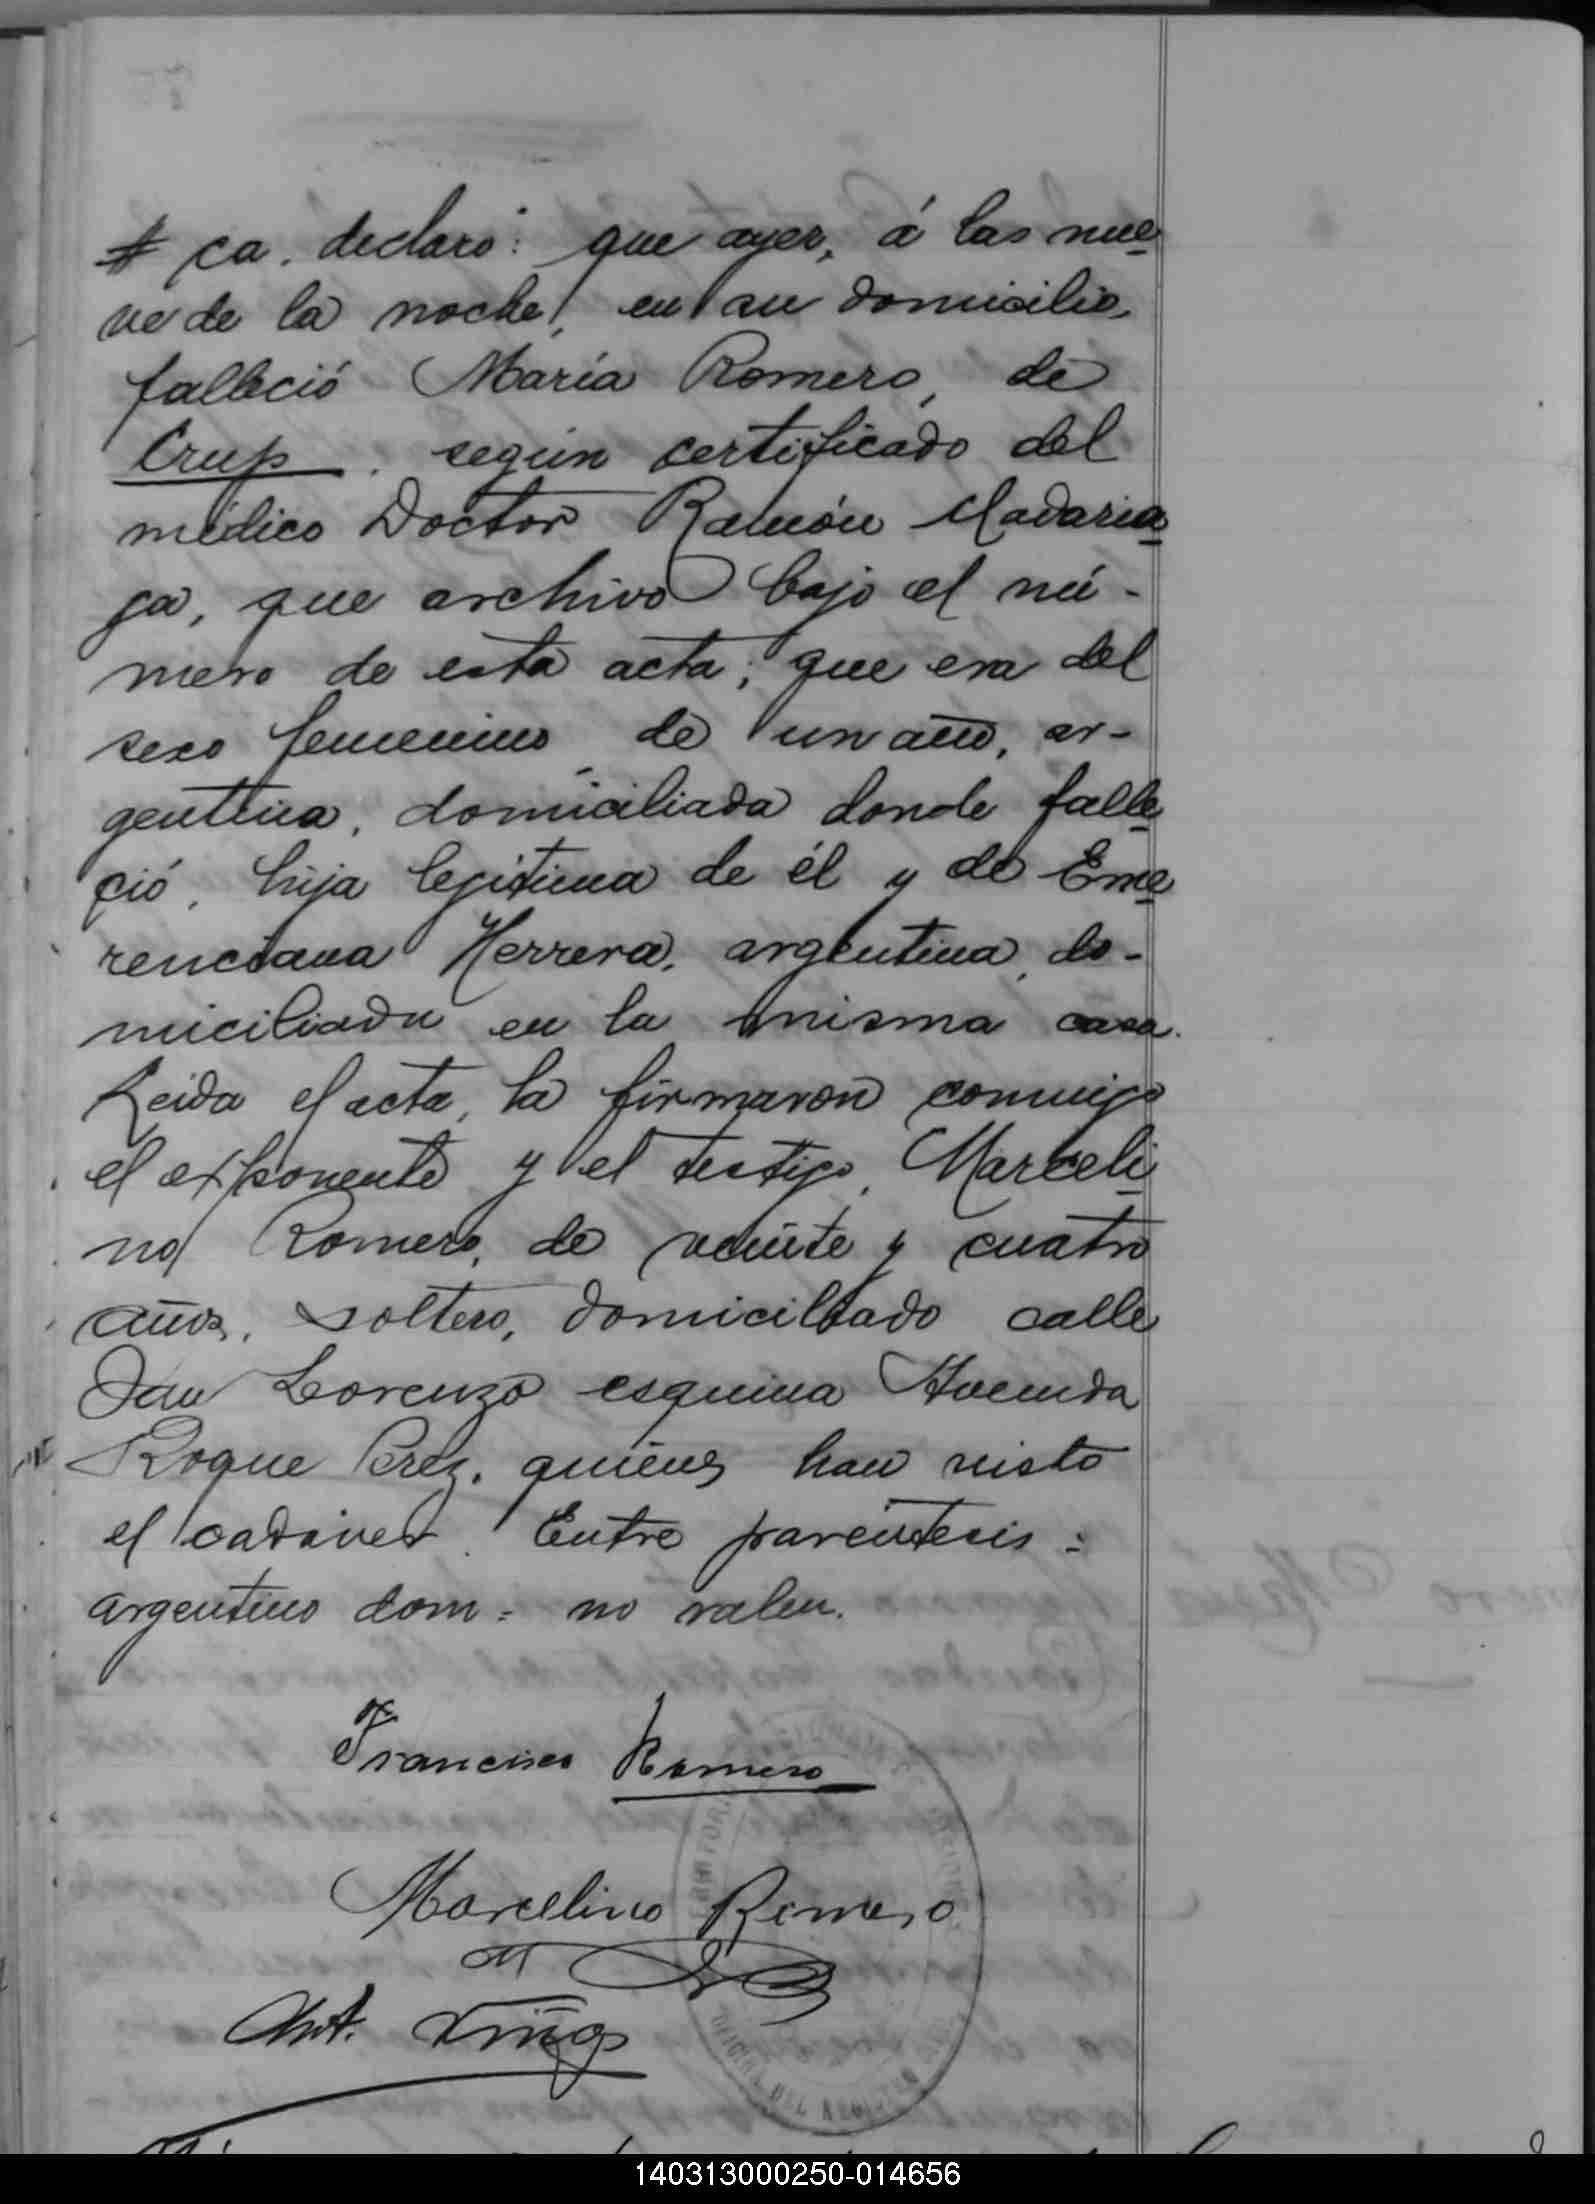 # ca. declaró: que ayer, á las nue
ve de la noche, en su domicilio,
falleció María Romero, de
Crup, según certificado del
médico Doctor Ramón Madaria
ga, que archivo bajo el nú-
mero de esta acta; que era del
sexo femenino, de un año, ar-
gentina, domiciliada donde falle
ció, hija legitima de él y de Eme
renciana Herrera, argentina, do-
miciliada en la misma casa.
Leida el acta, la firmaron conmigo
el exponente y el testigo, Marceli
no Romero, de veinte y cuatro
años, soltero, domiciliado calle
San Lorenzo esquina Avenida
Roque Perez, quienes han visto
el cadáver. Entre paréntesis:
argentino dom= no valen.
Francisco Romero
Marcelino Romero
Ant.
OFICINA DEL REGISTRO
140313000250-014656